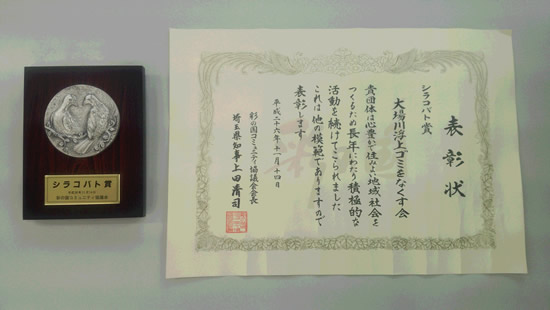 表彰状
シラコバト賞
大場川浮上ゴミをなくす会
貴団体は心豊かで住みよい地域社会を
つくるため長年にわたり積極的な
活動を続けてこられました
これは他の模範でありますので
表彰します
平成二十六年十一月十四日
彩の国コミュニティ協議会会長
埼玉県知事上田清司
シラコバト賞
彩の国コミュニティ協議会